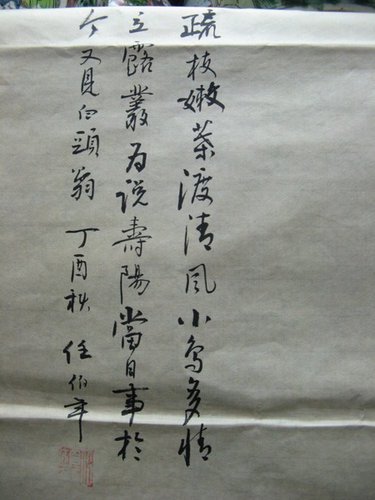 疏枝嫩葉渡清風小鳥多情
立露叢為说壽陽當日事於
今又見白頭翁 丁酉秋 任伯年